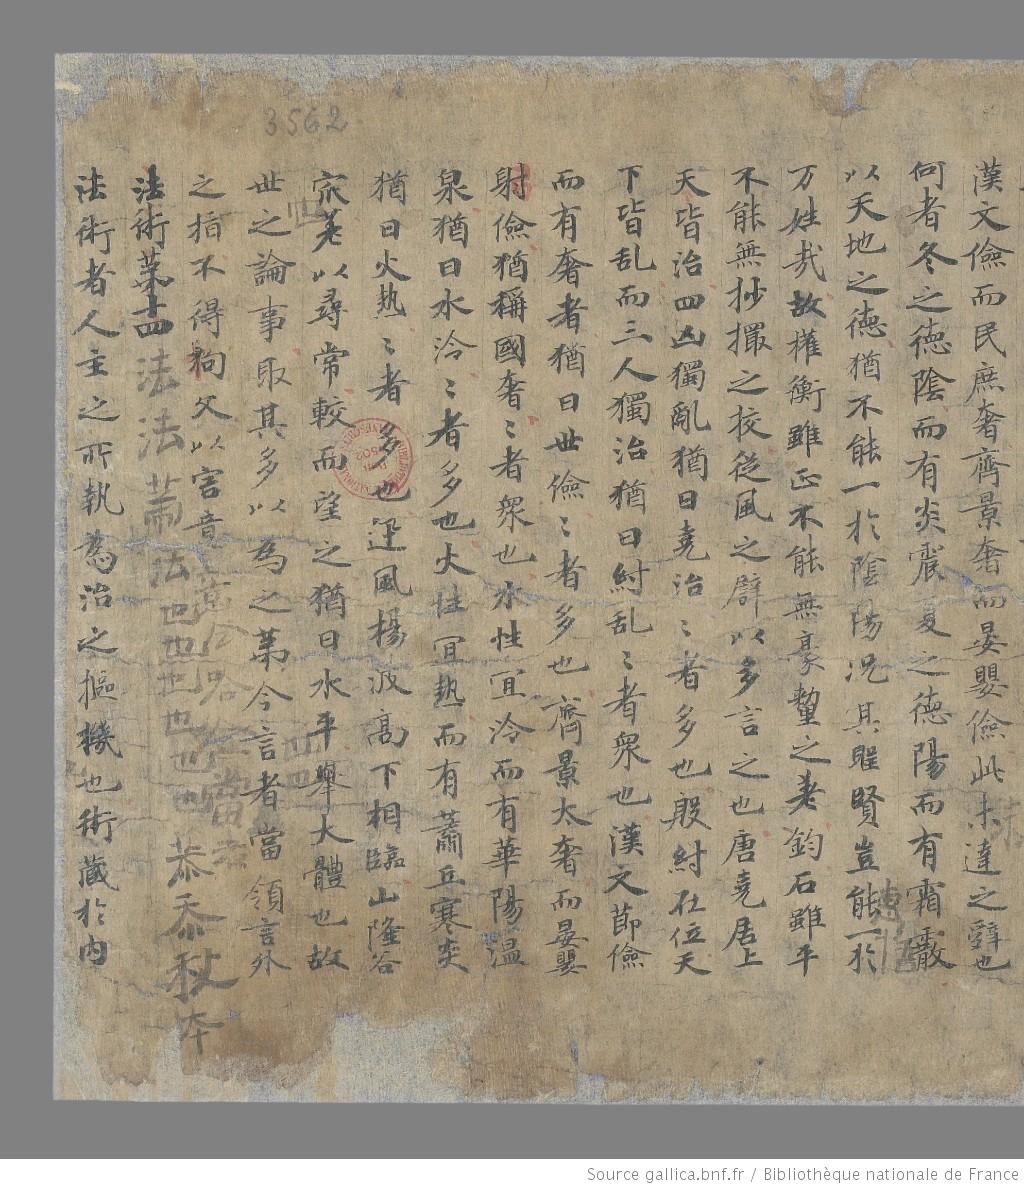 漢文儉而民庶奢齊景奢而晏嬰儉此未達之辭也
何者冬之德陰而有炎震夏之德陽而有霜霰
以天地之德猶不能一於陰陽况其賢豈能一於
万姓哉故權衡雖正不能無豪氂之差鈞石雖平
不能無抄撮之挍從風之辟以多言之也唐堯居上
天皆治四凶獨亂猶曰堯治〻者多也殷紂在位天
下皆乱而三人獨治猶曰紂乱〻者衆也漢文節儉
而有奢者猶曰世儉〻者多也齊景太奢而晏嬰
躬儉猶稱國奢〻者衆也水性宜泠而有華陽温
泉猶曰水泠〻者多也火性宜熱而有蕭丘寒炎
猶曰火熱〻者多也迅風揚波高下相臨山隆谷
㝡差以尋常較而望之猶曰水平舉大體也故
世之論事取其多以為之茅今言者當領言外
之指不得拘文以害意
法術苐十四 法法 法也也也也也 恭忝
法術者人主之所執為治之摳機也術藏於内
3562
Source gallica.bnf.fr / Bibliothèque nationale de France